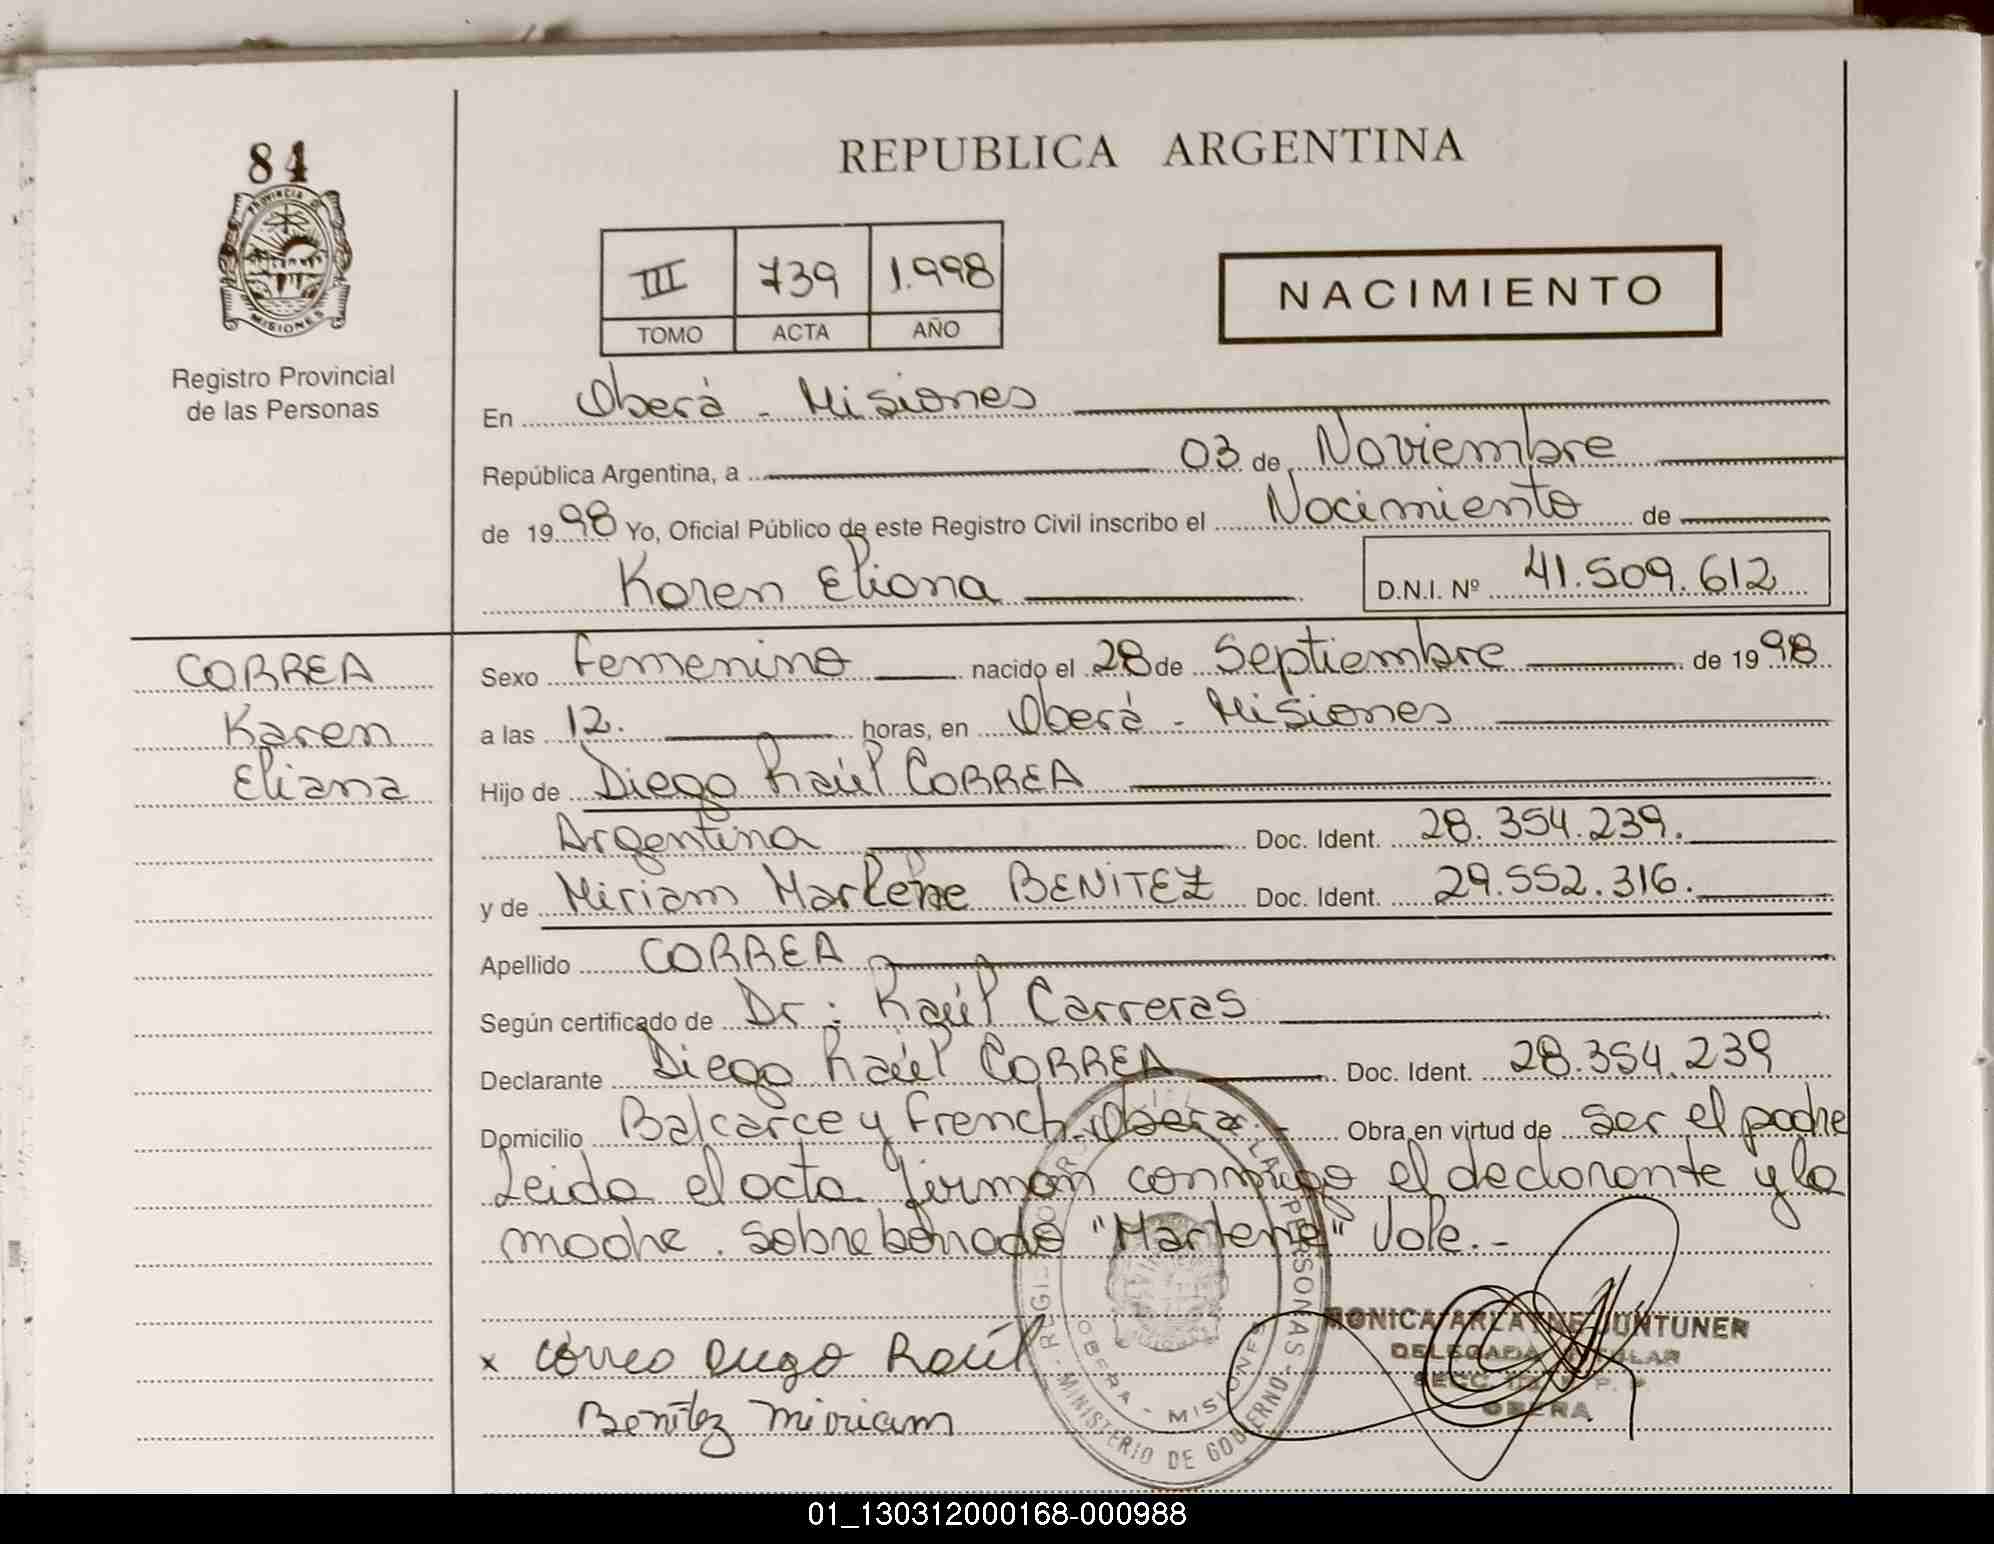 84
PROVINCIA DE
MISIONES
Registro Provincial
de las Personas
REPUBLICA ARGENTINA
III 739 1.998
TOMO ACTA AÑO
NACIMIENTO
En Oberá - Misiones
República Argentina, a 03 de Noviembre
de 1998 Yo, Oficial Público de este Registro Civil inscribo el Nacimiento de
Karen Eliana D.N.I. Nº 41.509.612
CORREA
Karen
Eliana
Sexo Femenino nacido el 28 de Septiembre de 1998
a las 12. horas, en Oberá - Misiones
Hijo de Diego Raúl CORREA
Argentina Doc. Ident. 28.354.239.
y de Miriam Marlene BENITEZ Doc. Ident. 29.552.316.
Apellido CORREA
Según certificado de Dr: Raúl Carreras
Declarante Diego Raúl CORREA Doc. Ident. 28.354.239
Domicilio Balcarce y French-Oberá.- Obra en virtud de ser el padre
Leida el acta firman conmigo el declarante y la
madre. Sobreborrado "Marlene" Vale.-
x Correa Diego Raúl
Benítez Miriam
LAS PERSONAS - MINISTERIO DE GOBIERNO
OBERA - MISIONES
MONICA ARLAYNE JUNTUNER
DELEGADA TITULAR
SECC.
OBERA
01_130312000168-000988